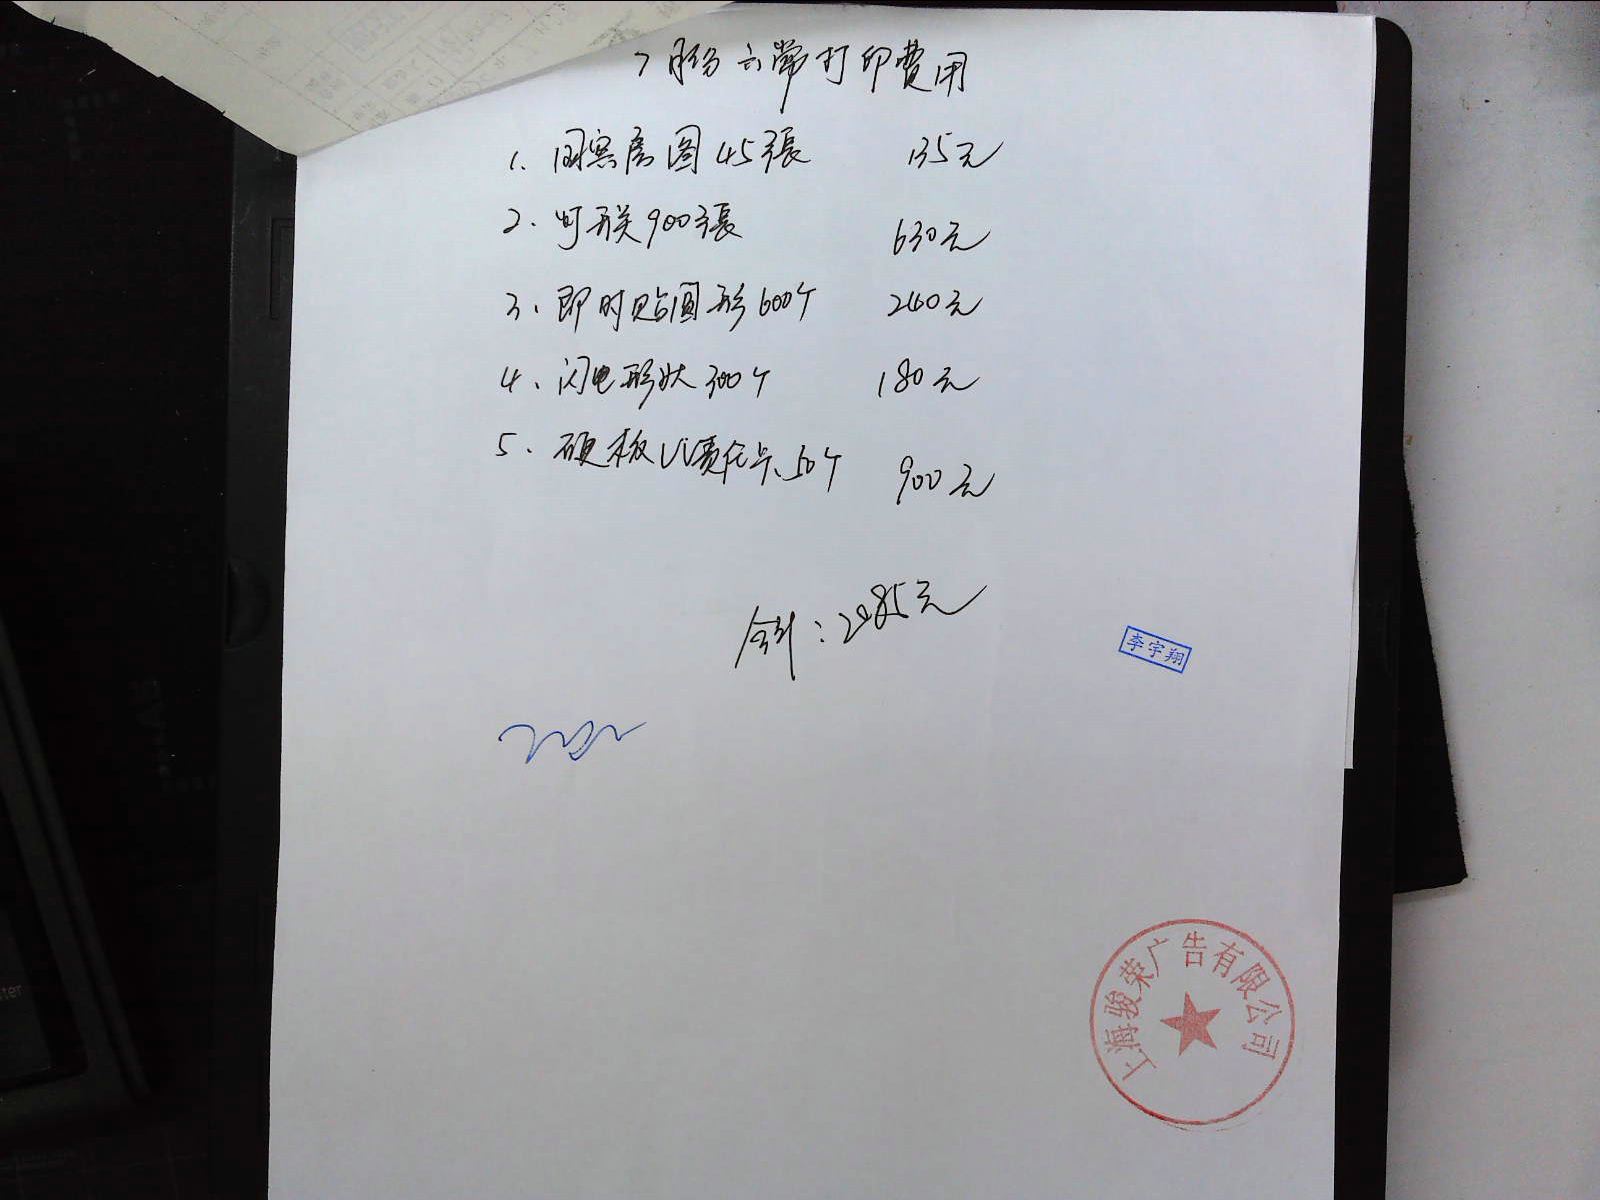 7月份 打印费用
1、 图45張 135元
2、 900張 630元
3、即时贴圆形600个 240元
4、闪电形状300个 180元
5、硬板UV责任 50个 900元
合计:2085元
李宇翔
上海骏荣广告有限公司